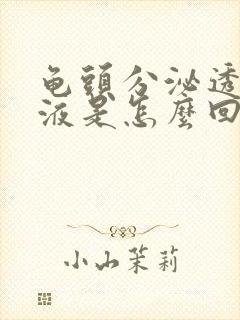 龟頭分泌透
液是怎麼回
小山茉莉